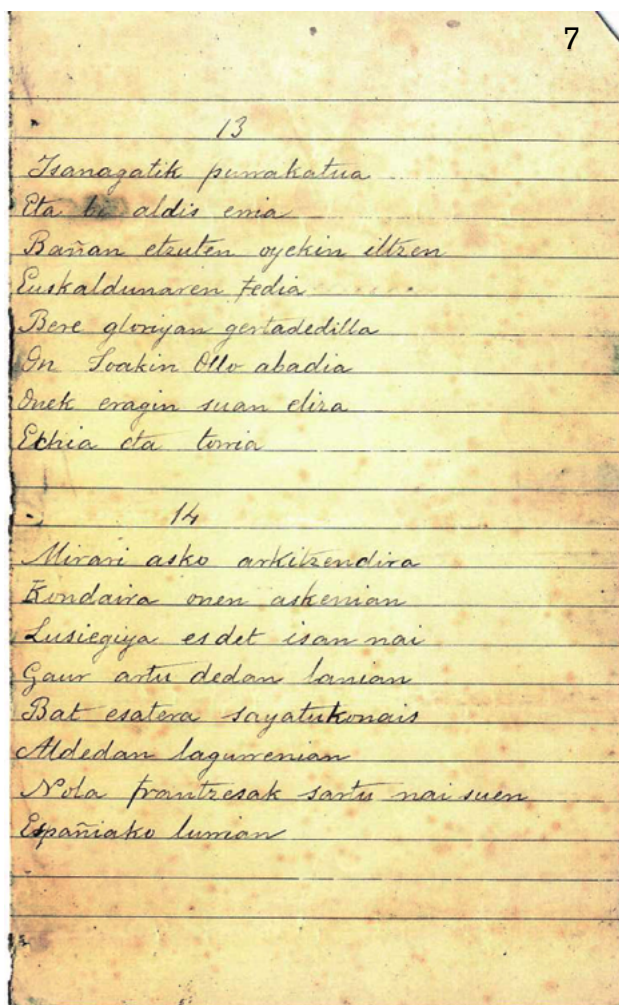 7
13
Isanagatik purrakatua
Eta bi aldis erria
Bañan etzuten oyekin iltzen
Euskaldunaren fedia
Bere gloriyan gertadedilla
On Joakin Ollo abadia
Onek eragin suan eliza
Echia eta torria
14
Mirari asko arkitzendira
Kondaira onen askenian
Lusiegiya esdet isan nai
Gaur artu dedan lanian
Bat esatera sayatukonais
Aldedan lagurrenian
Nola frantzesak sartu nai suen
Españiako lurrian